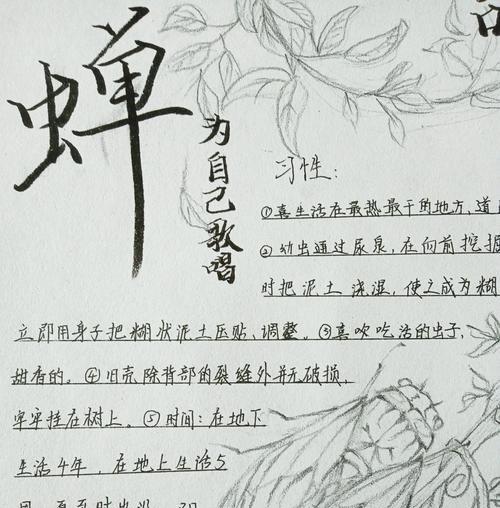 蝉
为自己歌唱
习性：
①喜生活在最热最干的地方，道
②幼虫通过尿泉，在向前挖掘
时把泥土浇湿，使之成为糊
立即用身子把糊状泥土压贴、调整。③喜欢吃活的虫子，
甜香的。④旧壳除背部的裂缝外并无破损，
牢牢挂在树上。⑤时间：在地下
生活4年，在地上生活5